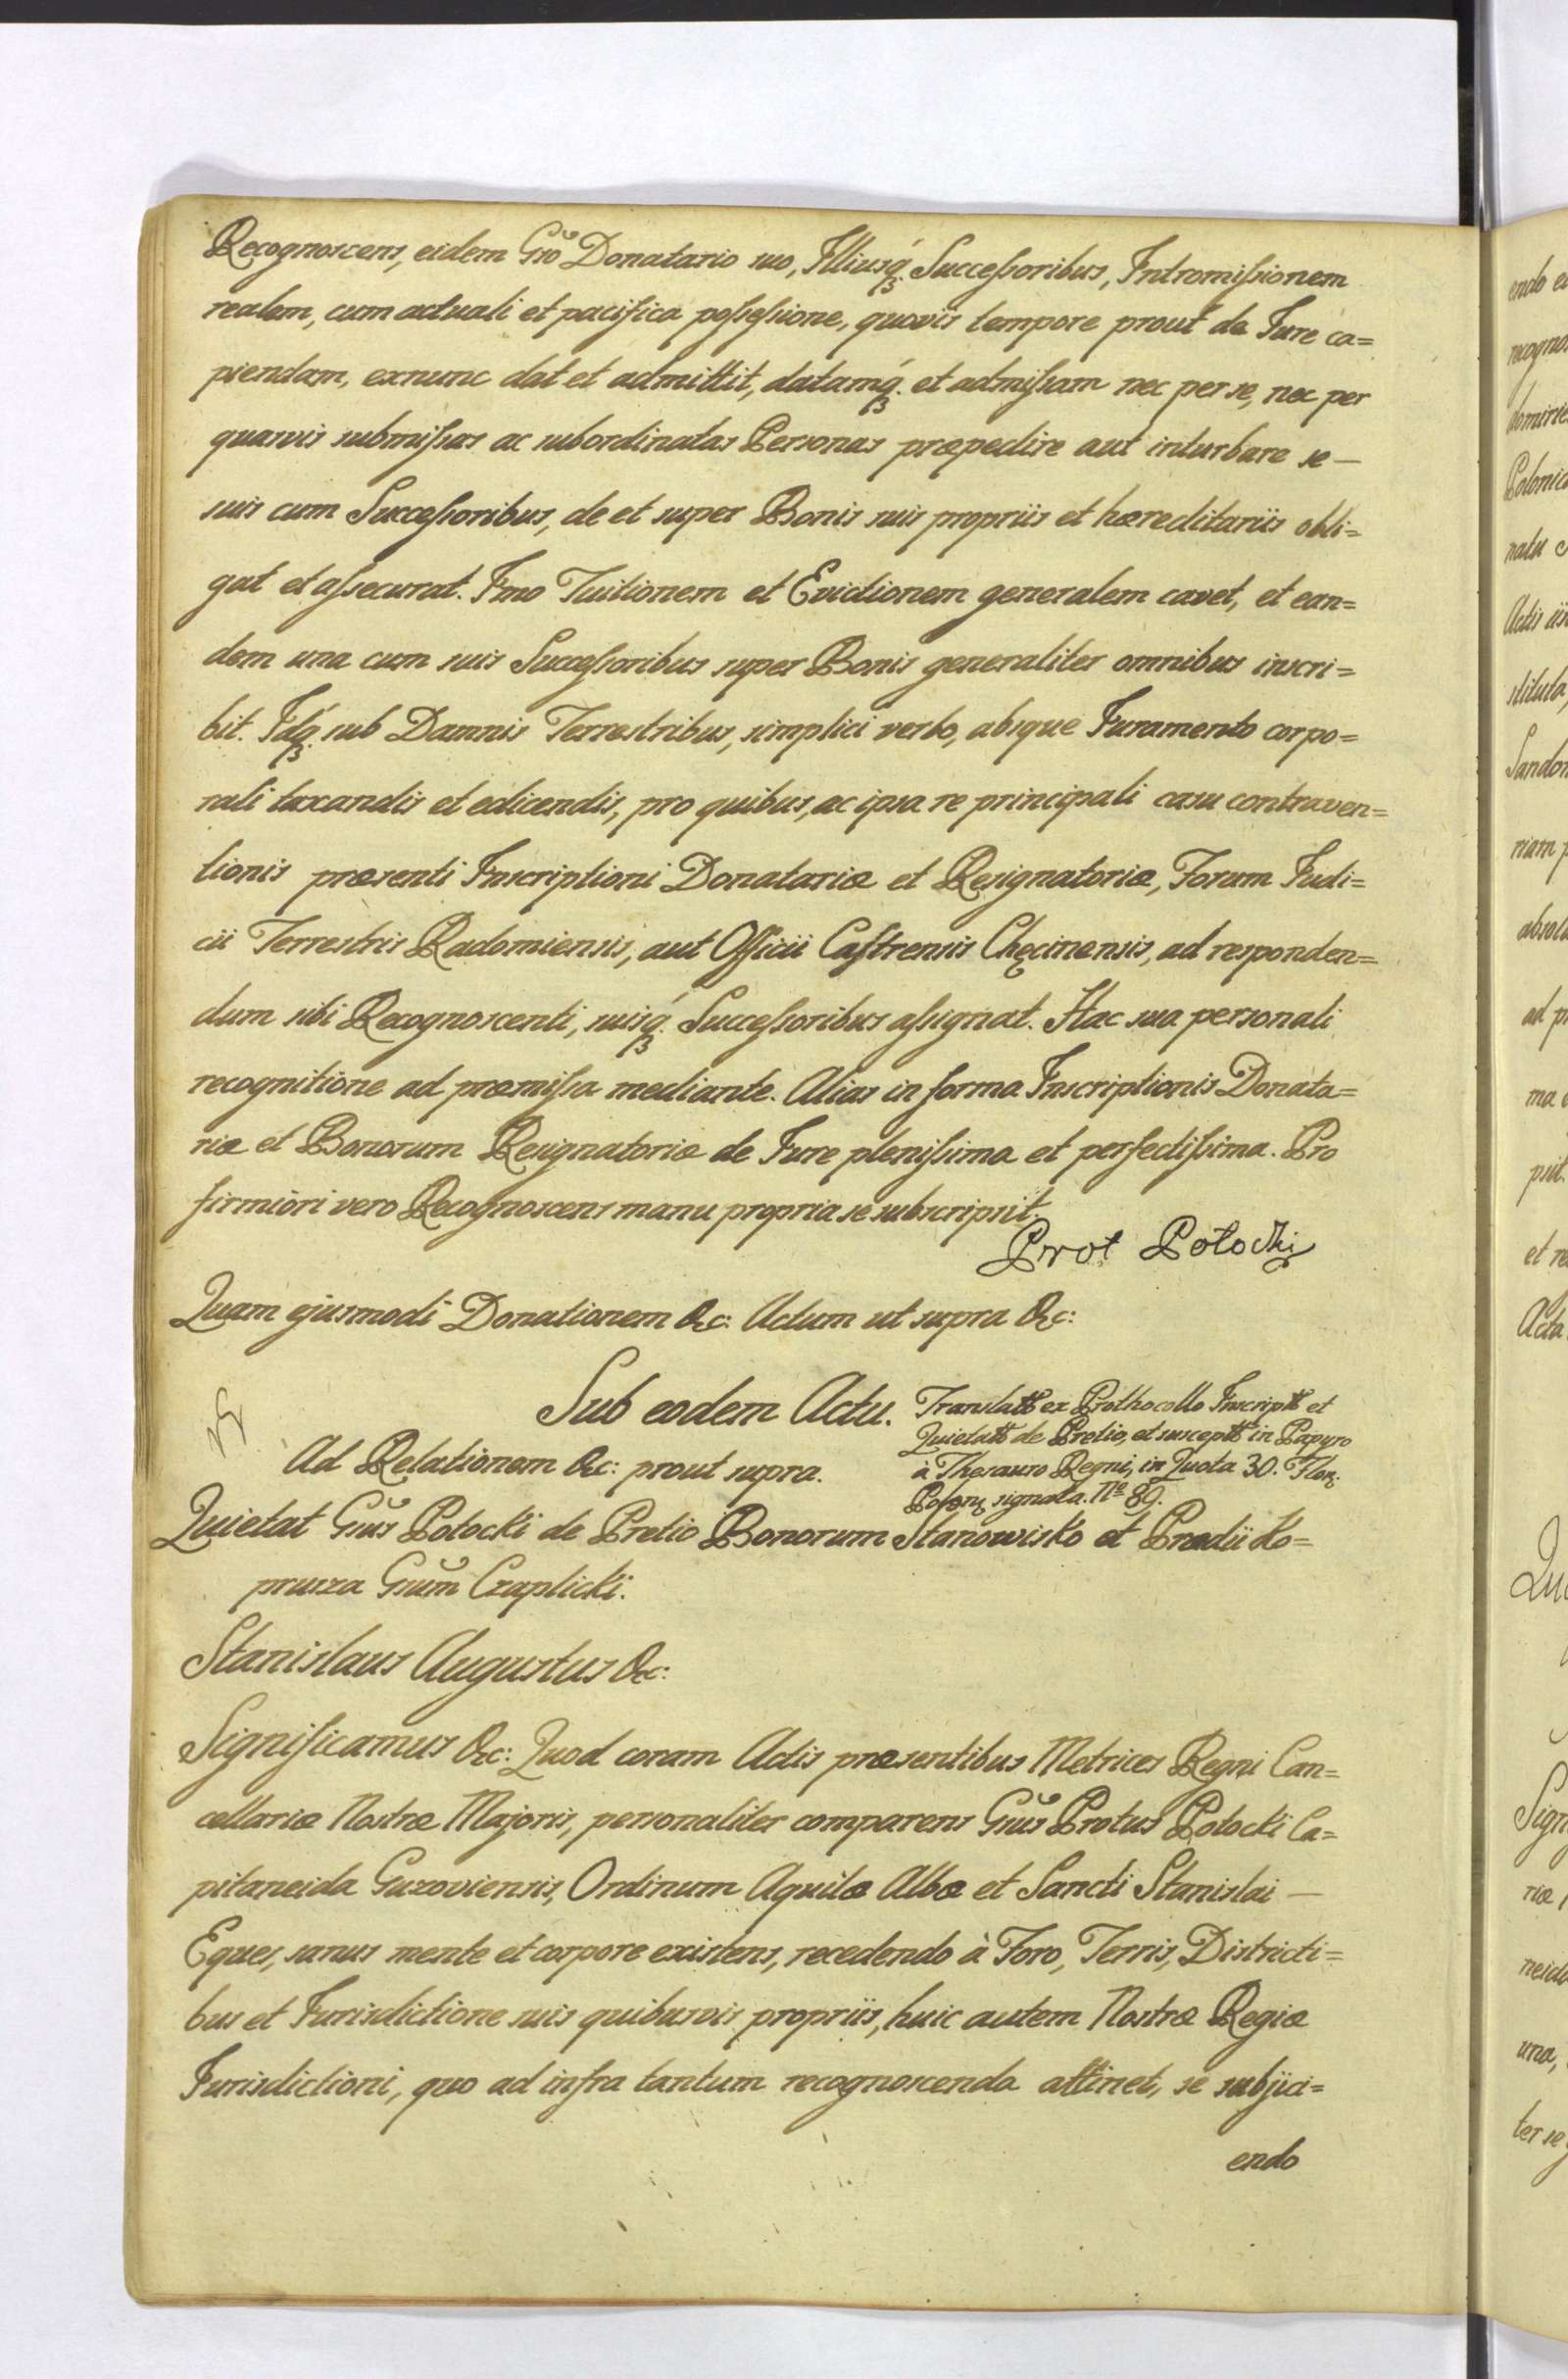 Recognoscens, eidem Gro Donatario suo, Illiusq́ꝫ Successoribus, Intromissionem
realem, cum actuali et pacifica possessione, quovis tempore prout de Jure ca=
piendam, exnunc dat et admittit, datamq́ꝫ et admissam nec per se, nec per
quasvis submissas ac subordinatas Personas præpedire aut inturbare se —
suis cum Successoribus, de et super Bonis suis propriis et hæreditariis obli=
gat et assecurat. Imo Tuitionem et Evictionem generalem cavet, et ean=
dem una cum suis Successoribus super Bonis generaliter omnibus inscri=
bit. Idq́ꝫ sub Damnis Terrestribus, simplici verbo, absque Juramento corpo=
rali taxandis et edicendis, pro quibus, ac ipsa re principali casu contraven=
tionis præsenti Inscriptioni Donatariæ et Resignatoriæ, Forum Judi=
cii Terrestris Radomiensis, aut Officii Castrensis Chęcinensis, ad responden=
dum sibi Recognoscenti, suisq́ꝫ Successoribus assignat. Hac sua personali
recognitione ad præmissa mediante. Alias in forma Inscriptionis Donata=
riæ et Bonorum Resignatoriæ de Jure plenissima et perfectissima. Pro
firmiori vero Recognoscens manu propria se subscripsit.
Prot Potocki
Quam ejusmodi Donationem &c: Actum ut supra &c:
Sub eodem Actu.
Translatt ex Prothocollo Inscriptt et
Quietatt de Pretio, et susceptt in Papyro
à Thesauro Regni, in Quota 30. Flor.
Polonę signata. No 89.
Ad Relationem &c: prout supra.
Quietat Gsus Potocki de Pretio Bonorum Stanowisko et Prædii Ko=
prusza Gsum Czaplicki.
Stanislaus Augustus &c:
Significamus &c: Quod coram Actis præsentibus Metrices Regni Can=
cellariæ Nostræ Majoris, personaliter comparens Gsus Protus Potocki Ca=
pitaneida Guzoviensis, Ordinum Aquilæ Albæ et Sancti Stanislai —
Eques, sanus mente et corpore existens, recedendo à Foro, Terris, Districti=
bus et Jurisdictione suis quibusvis propriis, huic autem Nostræ Regiæ
Jurisdictioni, quo ad infra tantum recognoscenda attinet, se subjici=
endo